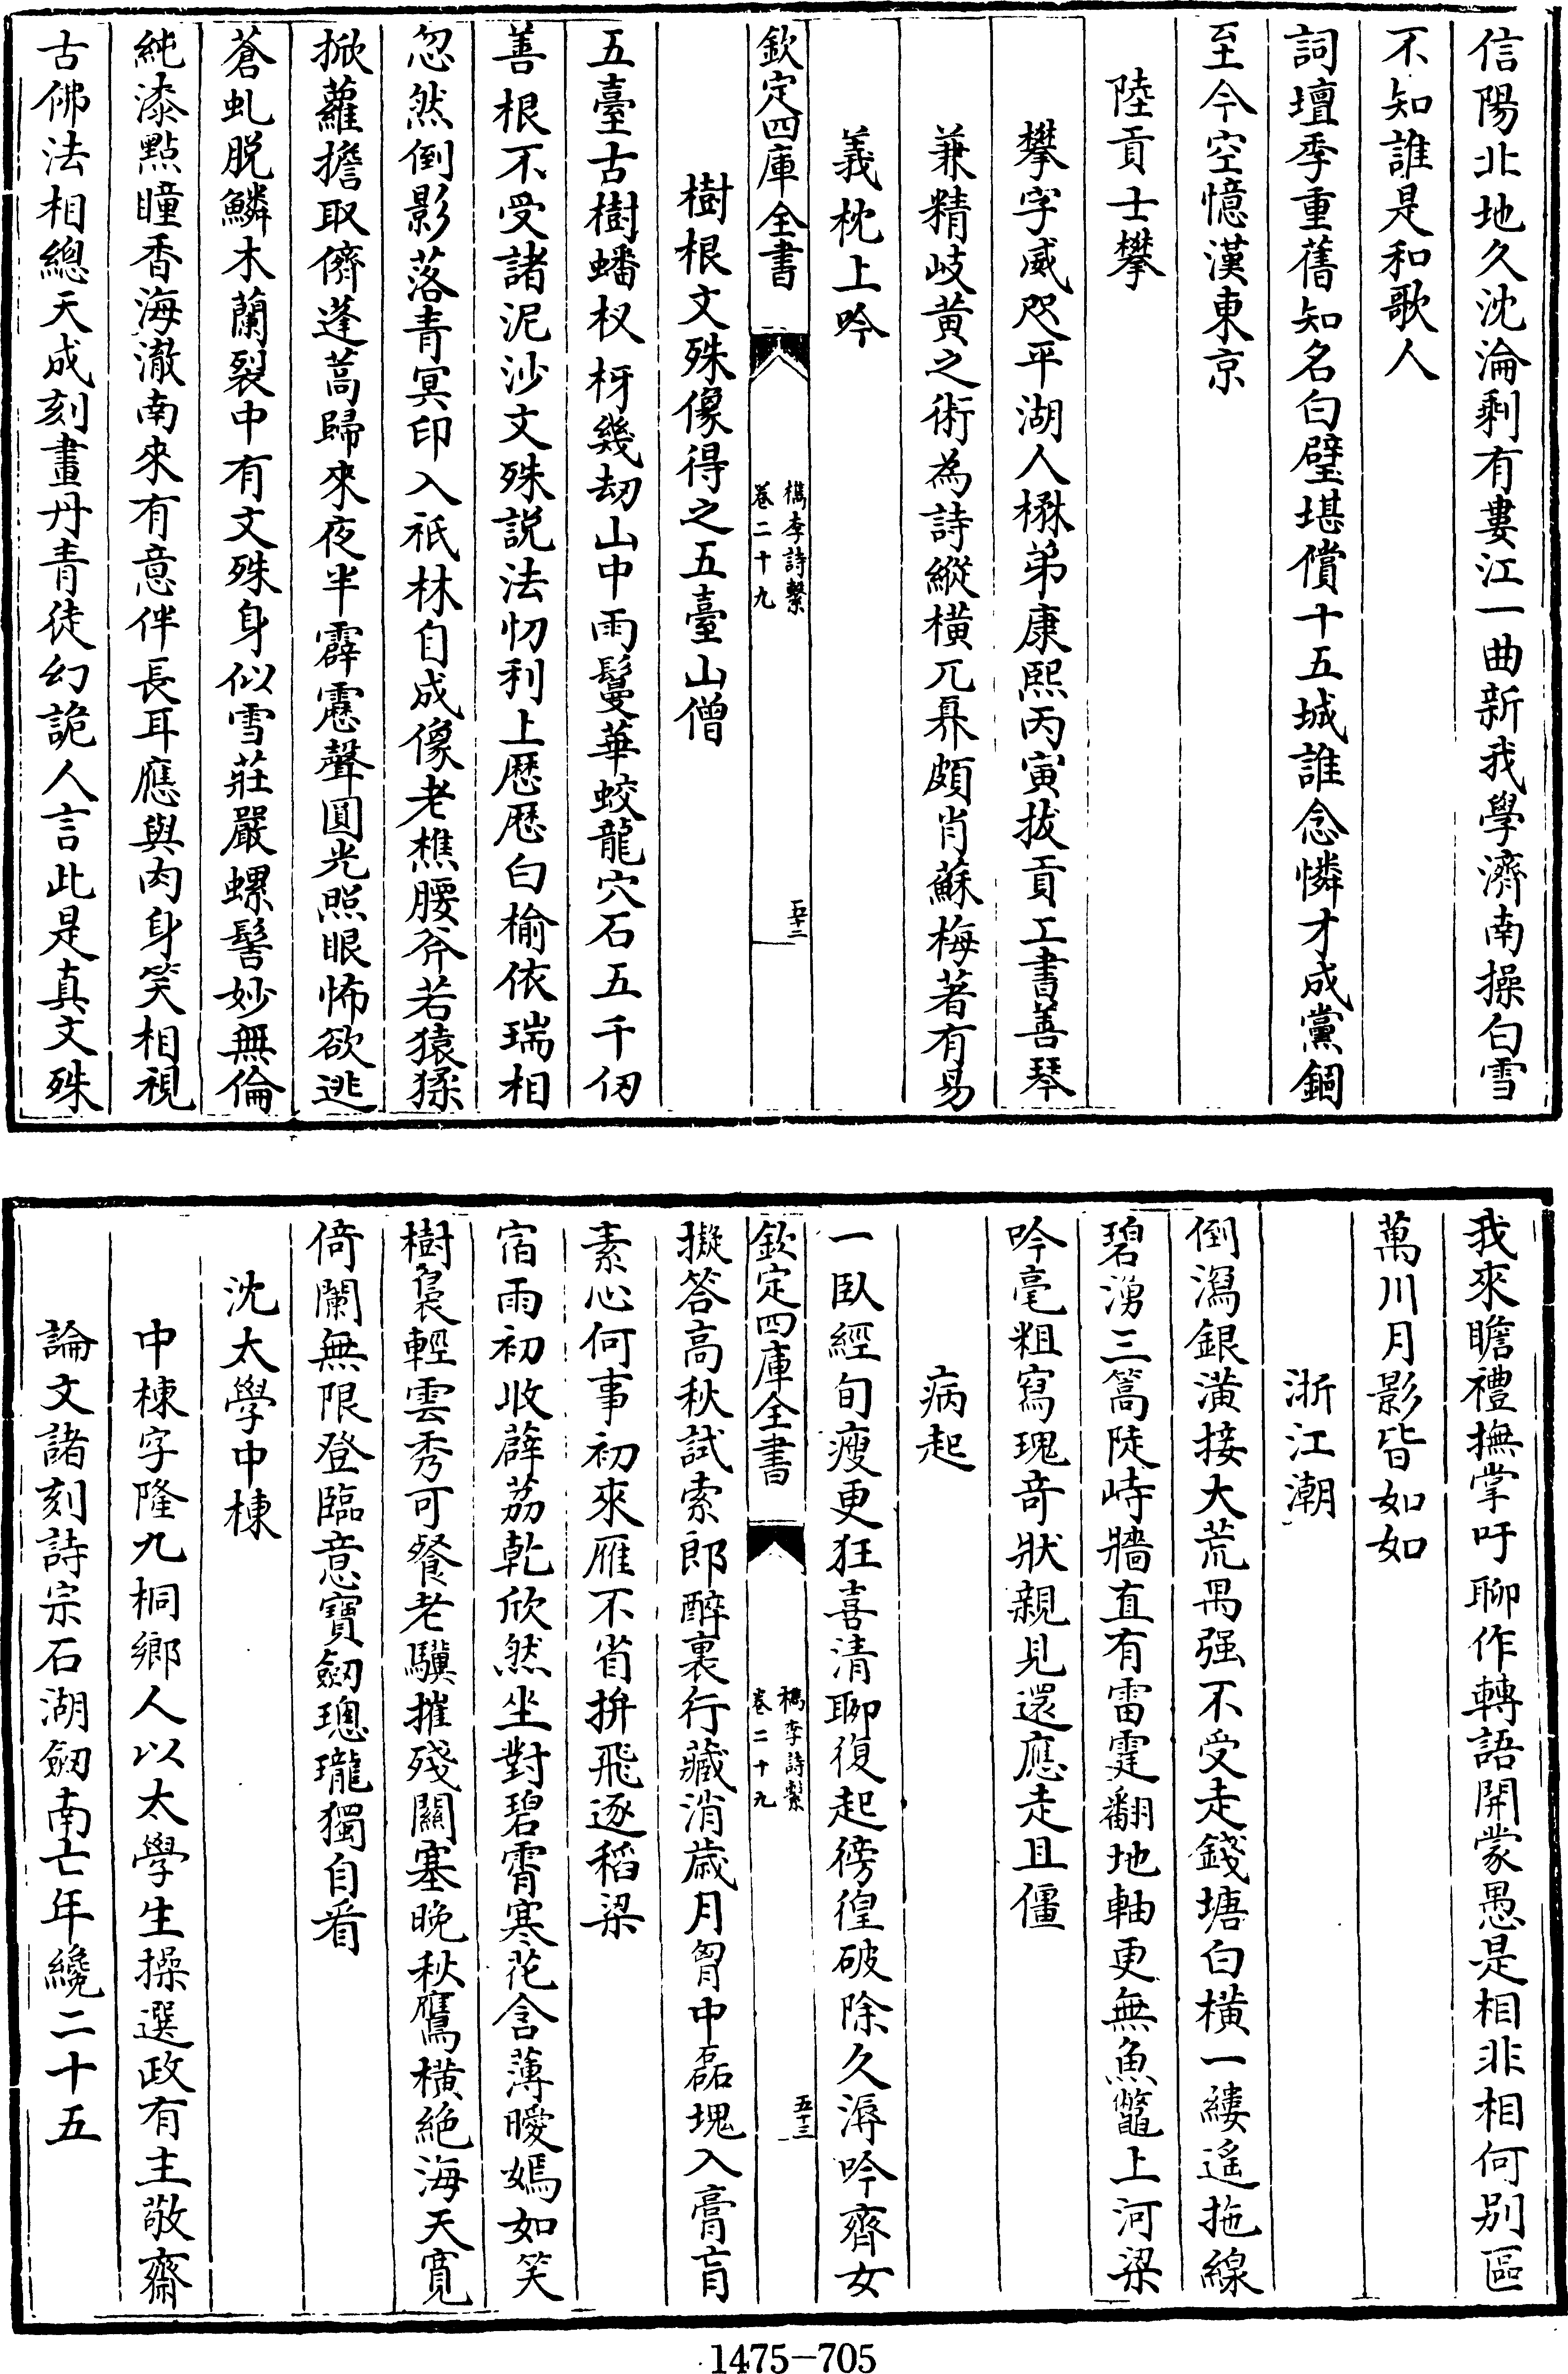 信陽北地久沈淪剩有婁江一曲新我學濟南操白雪
不知誰是和歌人
詞壇季重舊知名白璧堪償十五城誰念憐才成黨錮
至今空憶漢東京
陸貢士攀
攀字威咫平湖人楙弟康熙丙寅拔貢工書善琴
兼精岐黄之術為詩縱橫兀奡頗肖蘇梅著有易
義枕上吟
欽定四庫全書
檇李詩繫
卷二十九
五十二
樹根文殊像得之五臺山僧
五臺古樹蟠杈枒幾劫山中雨鬘華蛟龍穴石五千仞
善根不受諸泥沙文殊説法忉利上歴歴白榆依瑞相
忽然倒影落青冥印入祇林自成像老樵腰斧若猿猱
掀蘿擔取儕蓬蒿歸來夜半霹靂聲圓光照眼怖欲逃
蒼虬脱鱗木蘭裂中有文殊身似雪莊嚴螺髻妙無倫
純漆點瞳香海澈南來有意伴長耳應與肉身笑相視
古佛法相總天成刻畫丹青徒幻詭人言此是真文殊
我來瞻禮撫掌吁聊作轉語開蒙愚是相非相何别區
萬川月影皆如如
浙江潮
倒瀉銀潢接大荒禺强不受走錢塘白橫一縷遥拖線
碧湧三篙陡峙牆直有雷霆翻地軸更無魚鼈上河梁
吟毫粗寫瑰奇狀親見還應走且僵
病起
一臥經旬瘦更狂喜清聊復起徬徨破除久溽吟齊女
欽定四庫全書
檇李詩繫
卷二十九
五十三
擬答高秋試索郎醉裏行藏消歲月胷中磊塊入膏肓
素心何事初來雁不省拚飛逐稻梁
宿雨初收薜荔乾欣然坐對碧霄寒花含薄曖嫣如笑
樹裊輕雲秀可餐老驥摧殘關塞晚秋鷹橫絶海天寛
倚闌無限登臨意寶劒璁瓏獨自看
沈太學中棟
中棟字隆九桐鄉人以太學生操選政有主敬齋
論文諸刻詩宗石湖劒南亡年纔二十五
1475-705